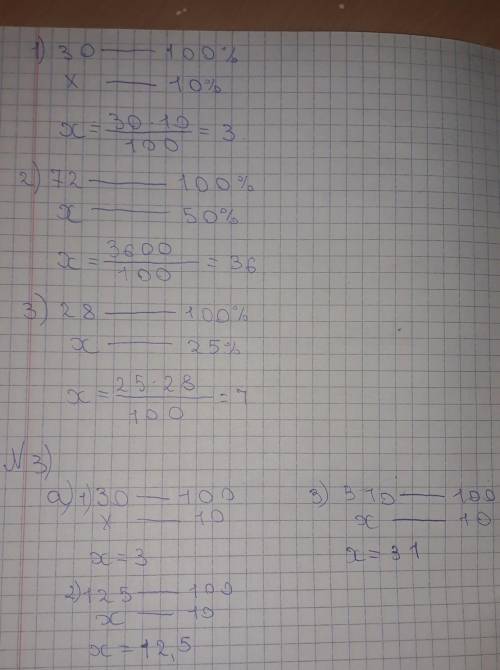 1) 30 — 100%
x — 10%
x = 30·10 / 100 = 3
2) 72 — 100%
x — 50%
x = 3600 / 100 = 36
3) 28 — 100%
x — 25%
x = 25·28 / 100 = 7
№3)
а) 1) 30 — 100
x — 10
x = 3
2) 125 — 100
x — 10
x = 12,5
3) 310 — 100
x — 10
x = 31